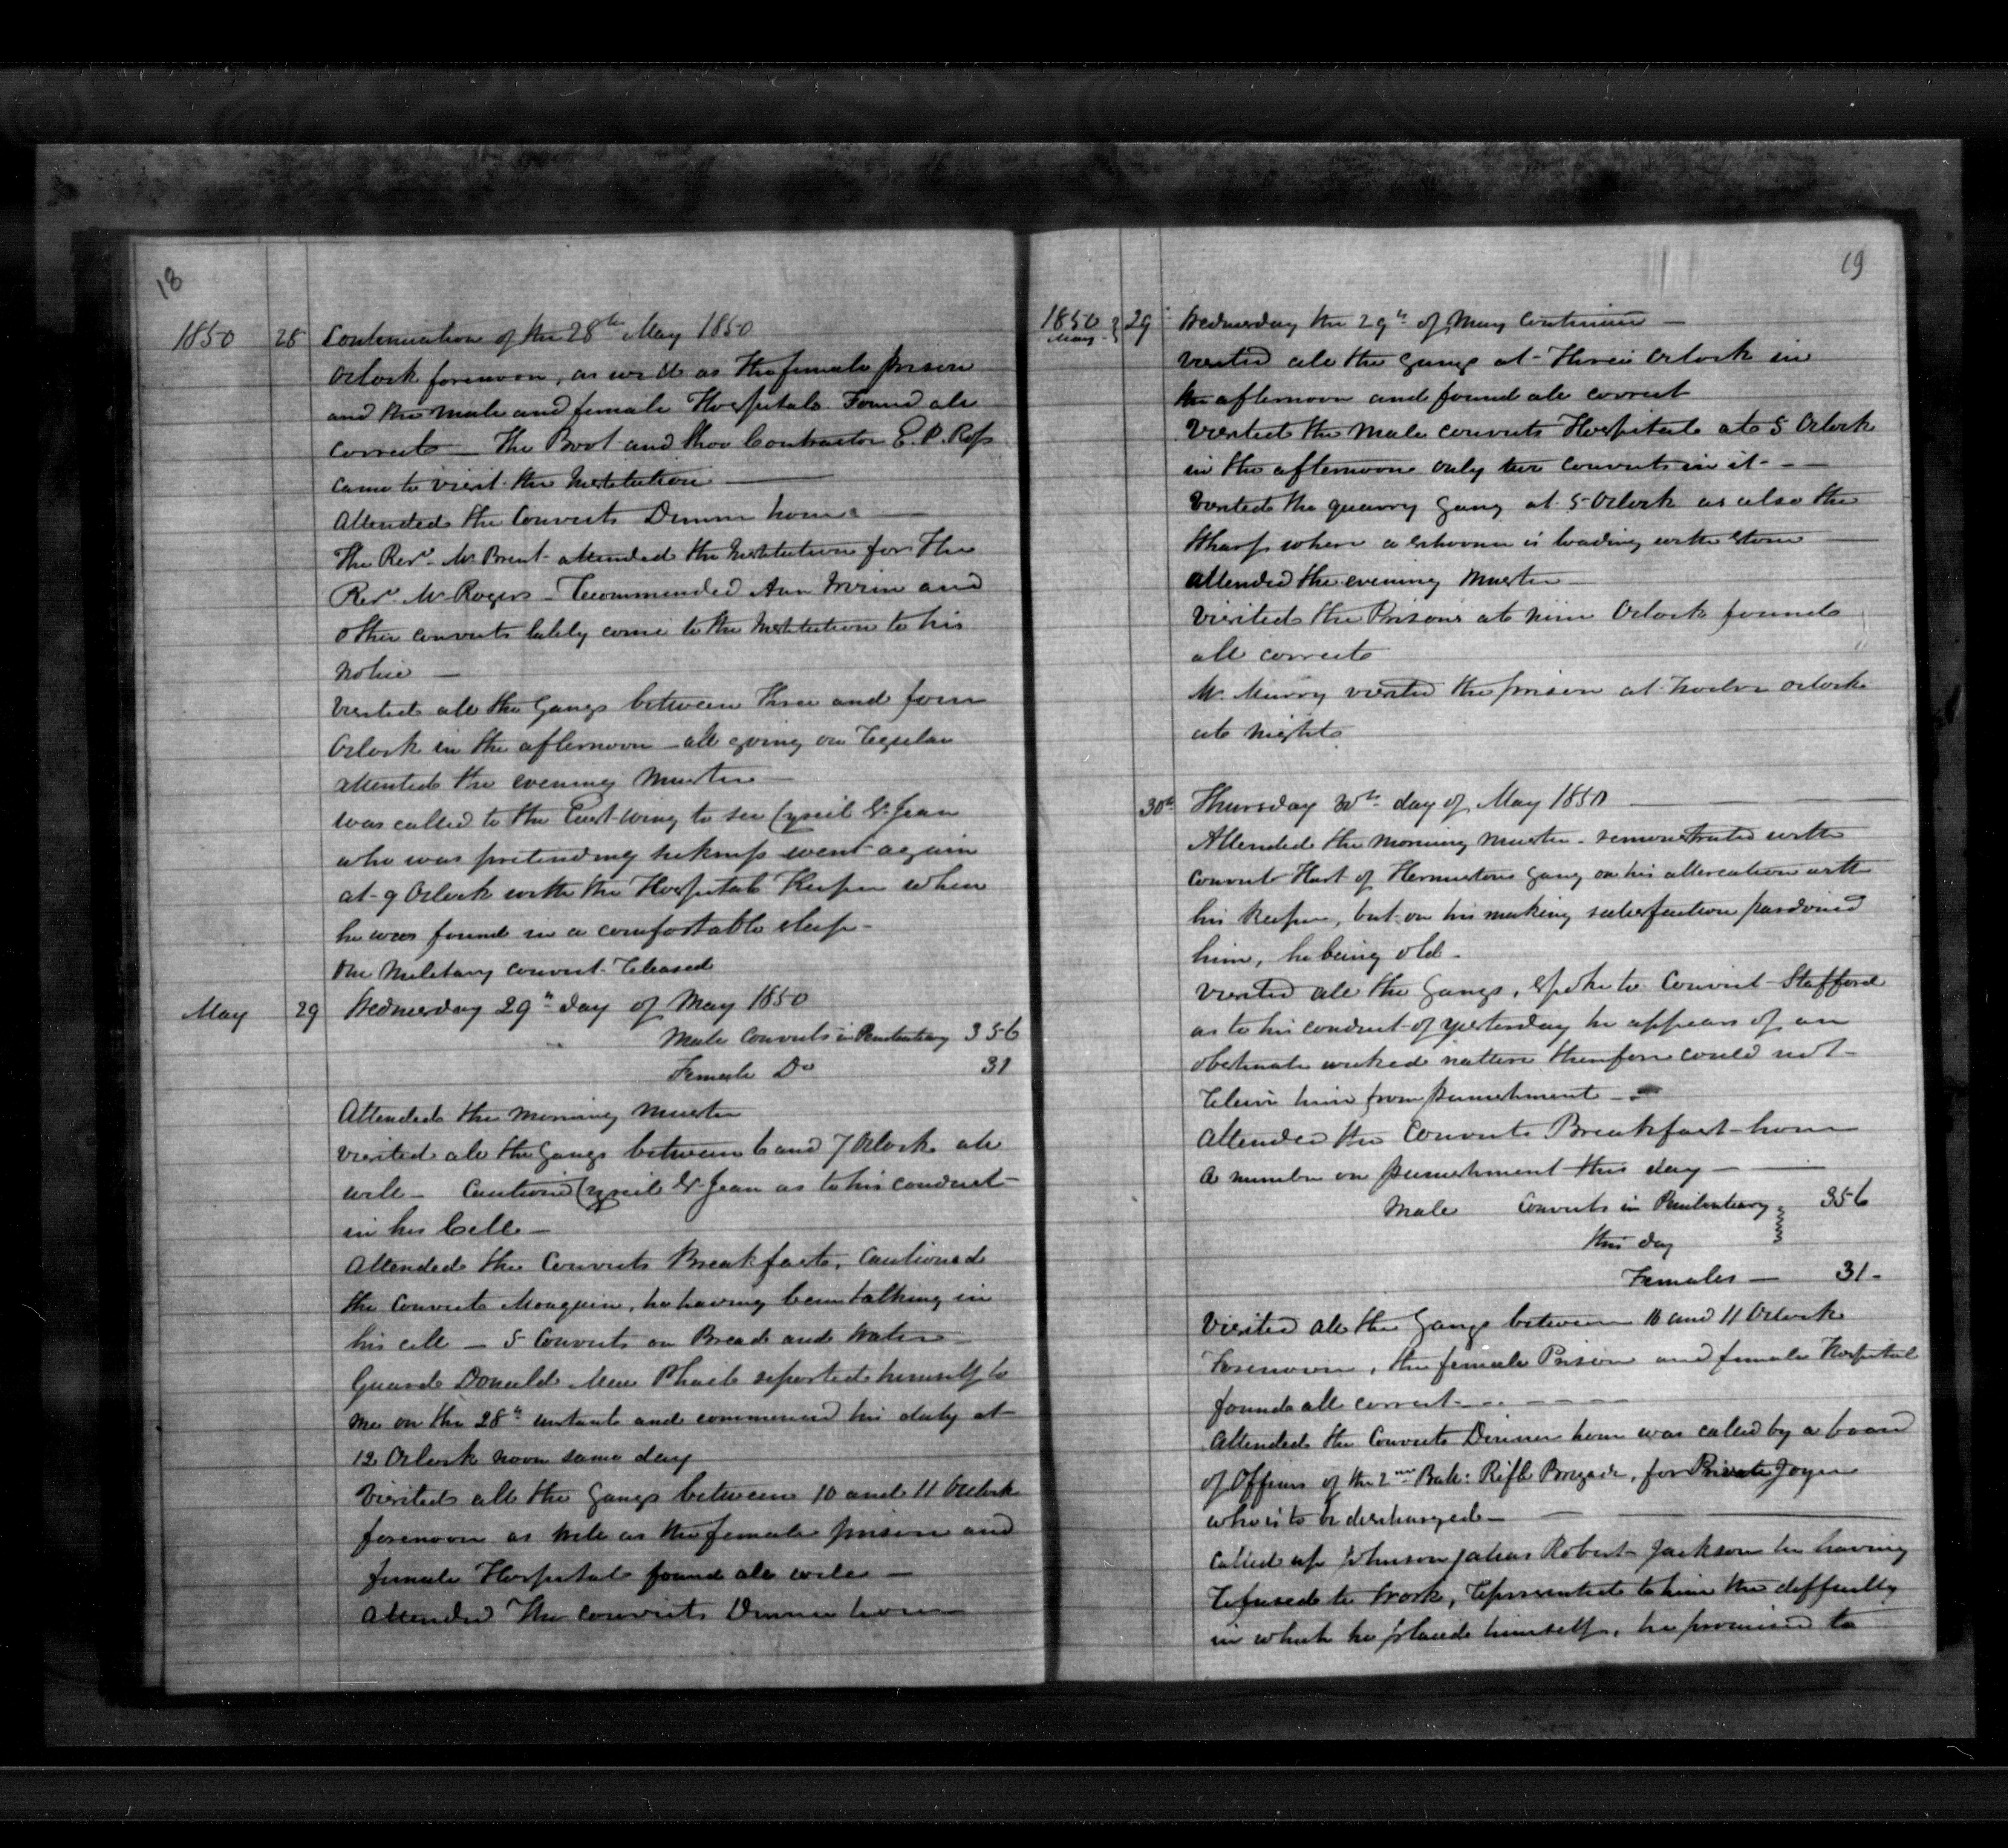 18
1850 28 Continuation of the 28th May 1850
Oclock forenoon, as well as the female prison
and the male and female Hospitals. Found all
correct — The Boot and Shoe Contractor E. P. Ross
came to visit the Institution —
Attended the Convicts Dinner hour —
The Revd. Mr Brent attended the Institution for the
Revd. Mr Rogers — Recommended Ann and
other convicts lately come to the Institution to his
notice —
Visited all the Gangs between three and four
Oclock in the afternoon — all going on regular
attented the evening Muster —
was called to the East wing to see Cyreil St. Jean
who was pretending sickness went again
at 9 Oclock with the Hospital Keeper when
he was found in a comfortable sleep —
One Military convict released
May 29 Wednesday 29th day of May 1850
Male Convicts in Penitentiary 356
Female Do 31
Attended the morning Muster
visited all the Gangs between 6 and 7 Oclock all
well — Cautioned Cyreil St. Jean as to his conduct
in his Cell —
Attended the Convicts Breakfast, Cautioned
the Convict Monguin, he having been talking in
his cell — 5 Convicts on Bread and Water —
Guard Donald Mac Phail reported himself to
me on the 28th instant and commenced his duty at
12 Oclock noon same day
Visited all the Gangs between 10 and 11 Oclock
forenoon as well as the female prison and
female Hospital found all well —
Attended the convicts Dinner hour
19
1850 May 29 Wednesday the 29th of May Continued —
visited all the gangs at Three Oclock in
the afternoon and found all correct
Visited the Male convicts Hospital at 5 Oclock
in the afternoon only two convicts in it - —
Visited the quarry Gang at 5 Oclock as also the
Wharf where a schooner is loading with stone —
attended the evening Muster —
Visited the Prisons at nine Oclock found
all correct
Mr Murry visited the prison at twelve oclock
at night
30th Thursday 30th day of May 1850 —
Attended the morning muster - remonstrated with
convict Hart of Hermestons Gang on his altercation with
his Keeper, but on his making satisfaction pardoned
him, he being old -
Visited all the Gangs, Spoke to Convict Stafford
as to his conduct of yesterday he appears of an
obstinate wicked nature therefore could not
relieve him from punishment —
Attended the Convicts Breakfast hour
a number on punishment this day — —
Male Convicts in Penitentiary 356
this day
Females — 31 -
Visited all the Gangs between 10 and 11 Oclock
Forenoon, the female Prison and female Hospital
found all correct - - - - -
Attended the Convicts Dinner hour was called by a board
of Officers of the 2nd Batt: Rifle Brigade, for Private Joyce
who is to be discharged — —
Called up Johnson alias Robert Jackson he having
refused to work, represented to him the difficulty
in which he placed himself, he promised to